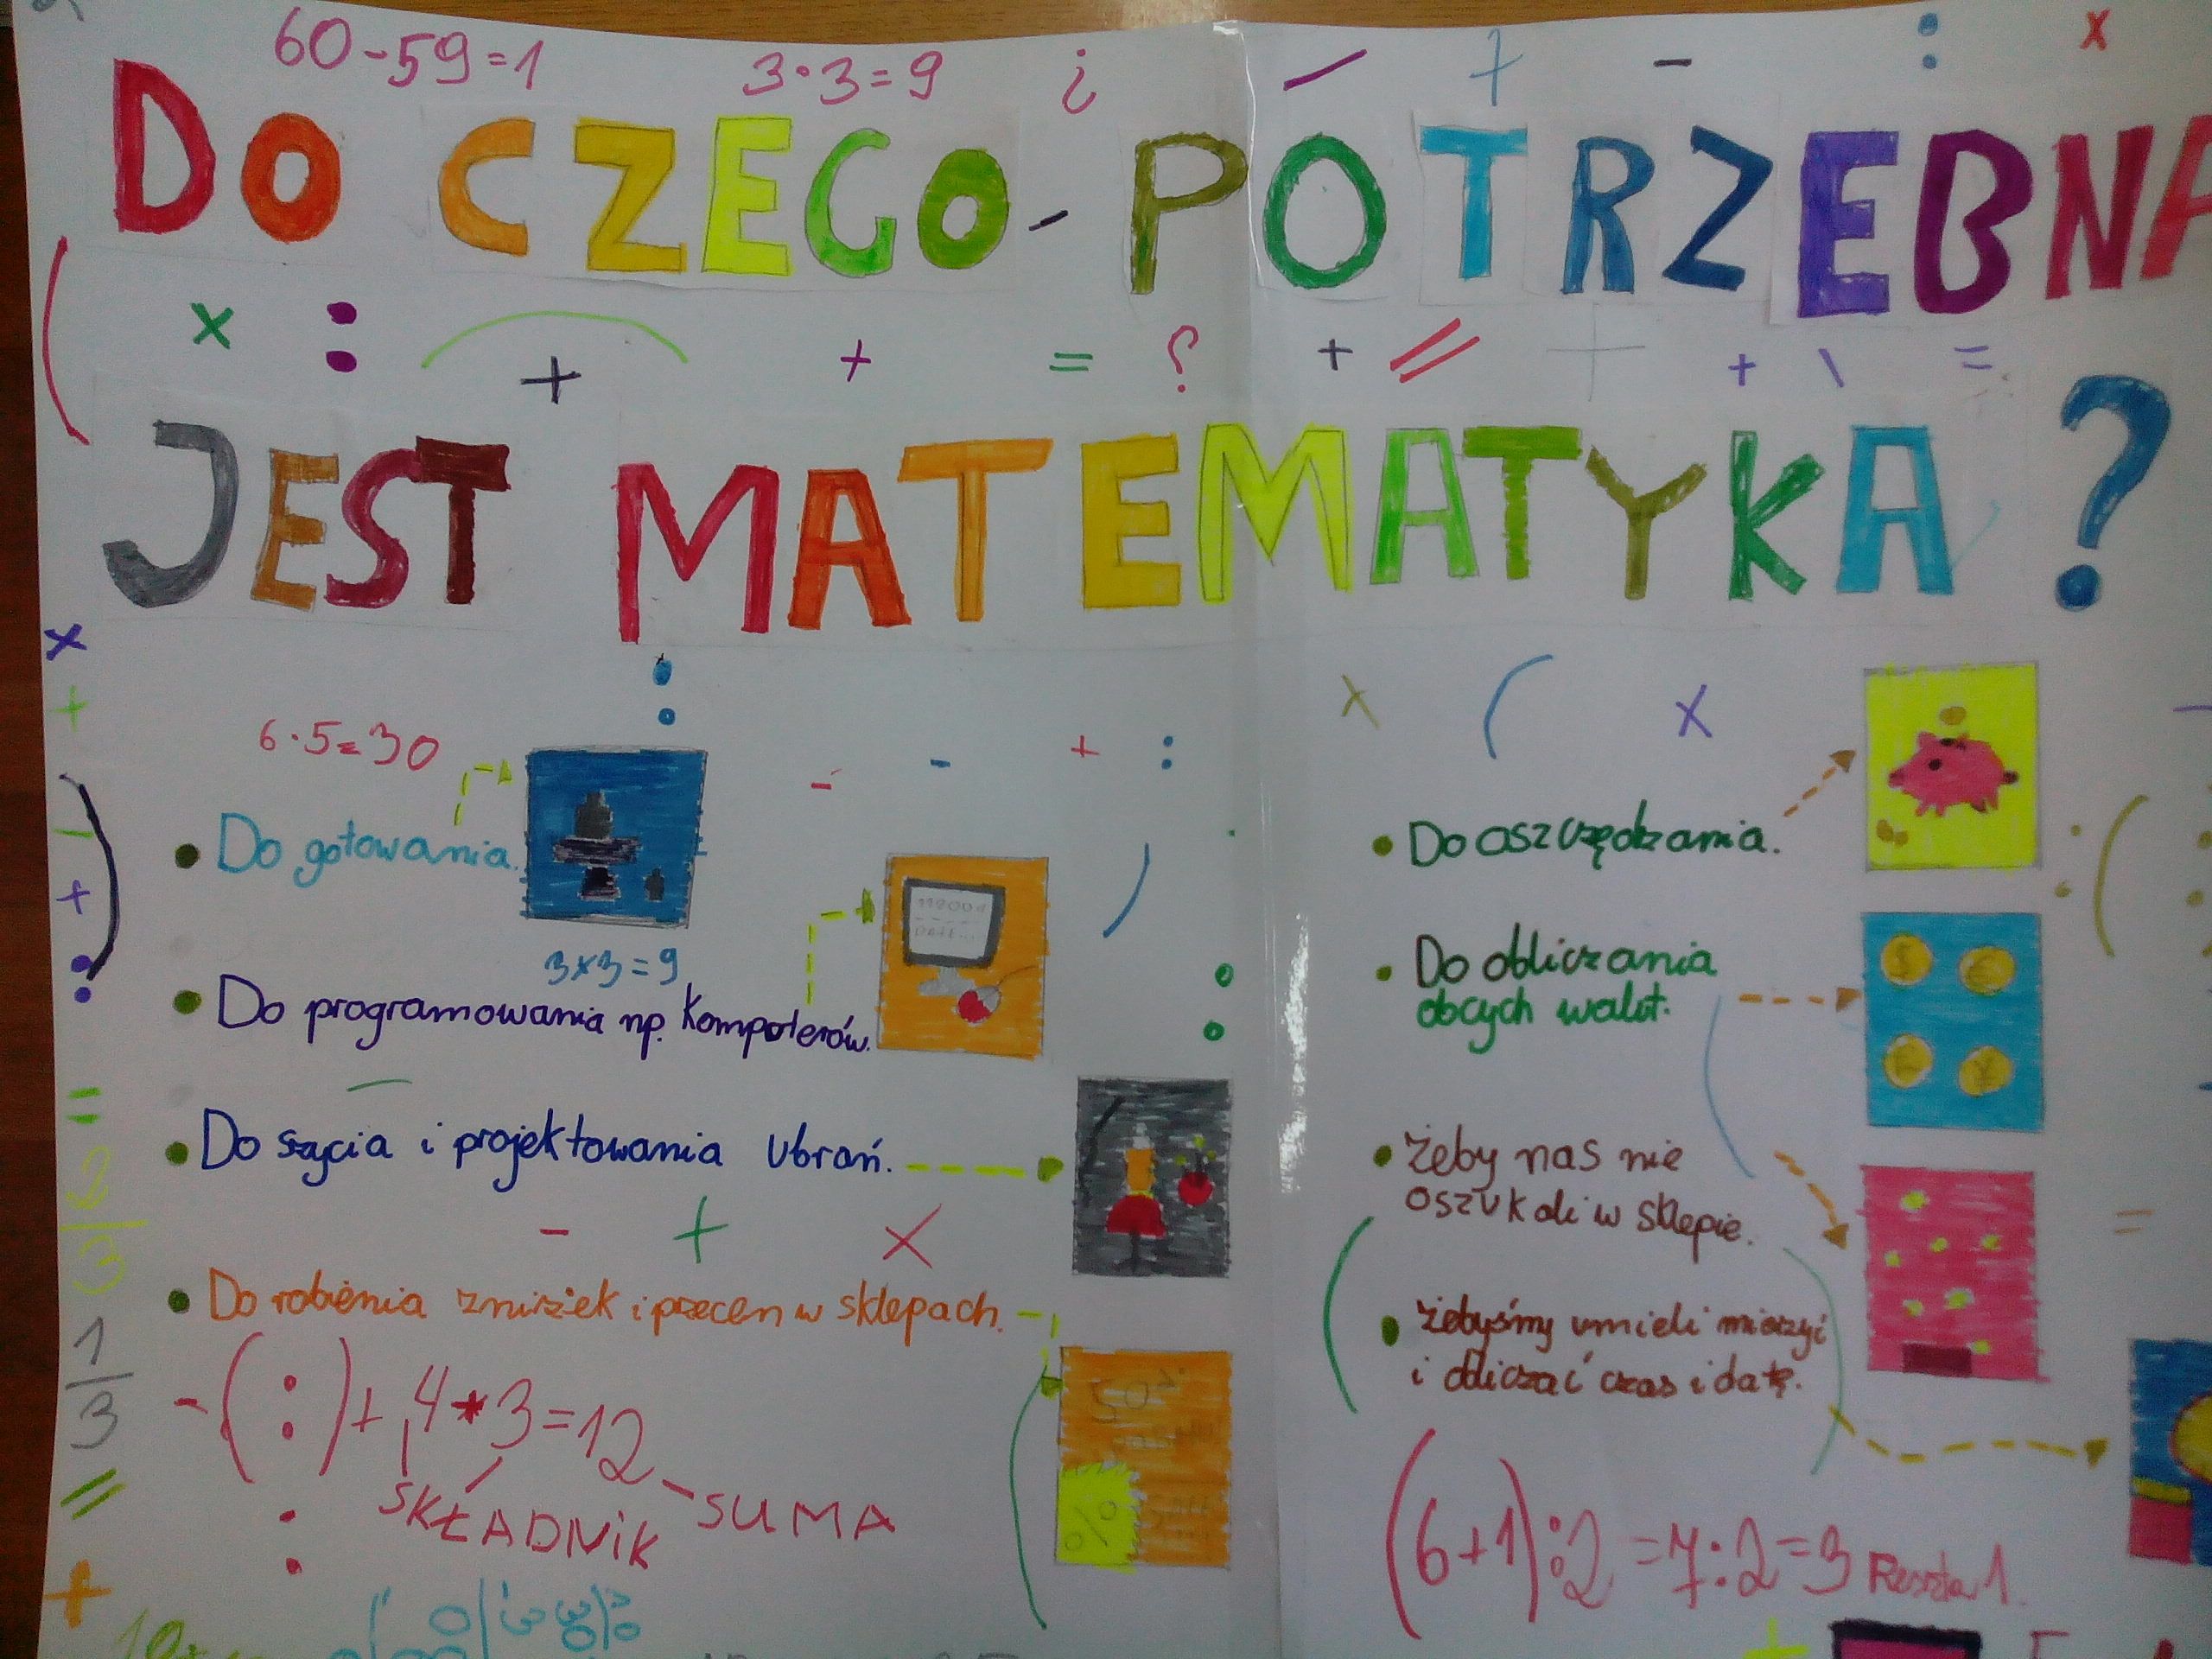 60-59=1
3·3=9
DO CZEGO POTRZEBNA
JEST MATEMATYKA?
6·5=30
• Do gotowania.
3×3=9
• Do programowania np. komputerów.
• Do szycia i projektowania ubrań.
• Do robienia zniżek i przecen w sklepach.
-(:)+4*3=12
SKŁADNIK
SUMA
2/3
1/3
%
• Do oszczędzania.
• Do obliczania
obcych walut.
• żeby nas nie
oszukali w sklepie.
• żebyśmy umieli mierzyć
i obliczać czas i datę.
(6+1):2=7:2=3 Reszta 1